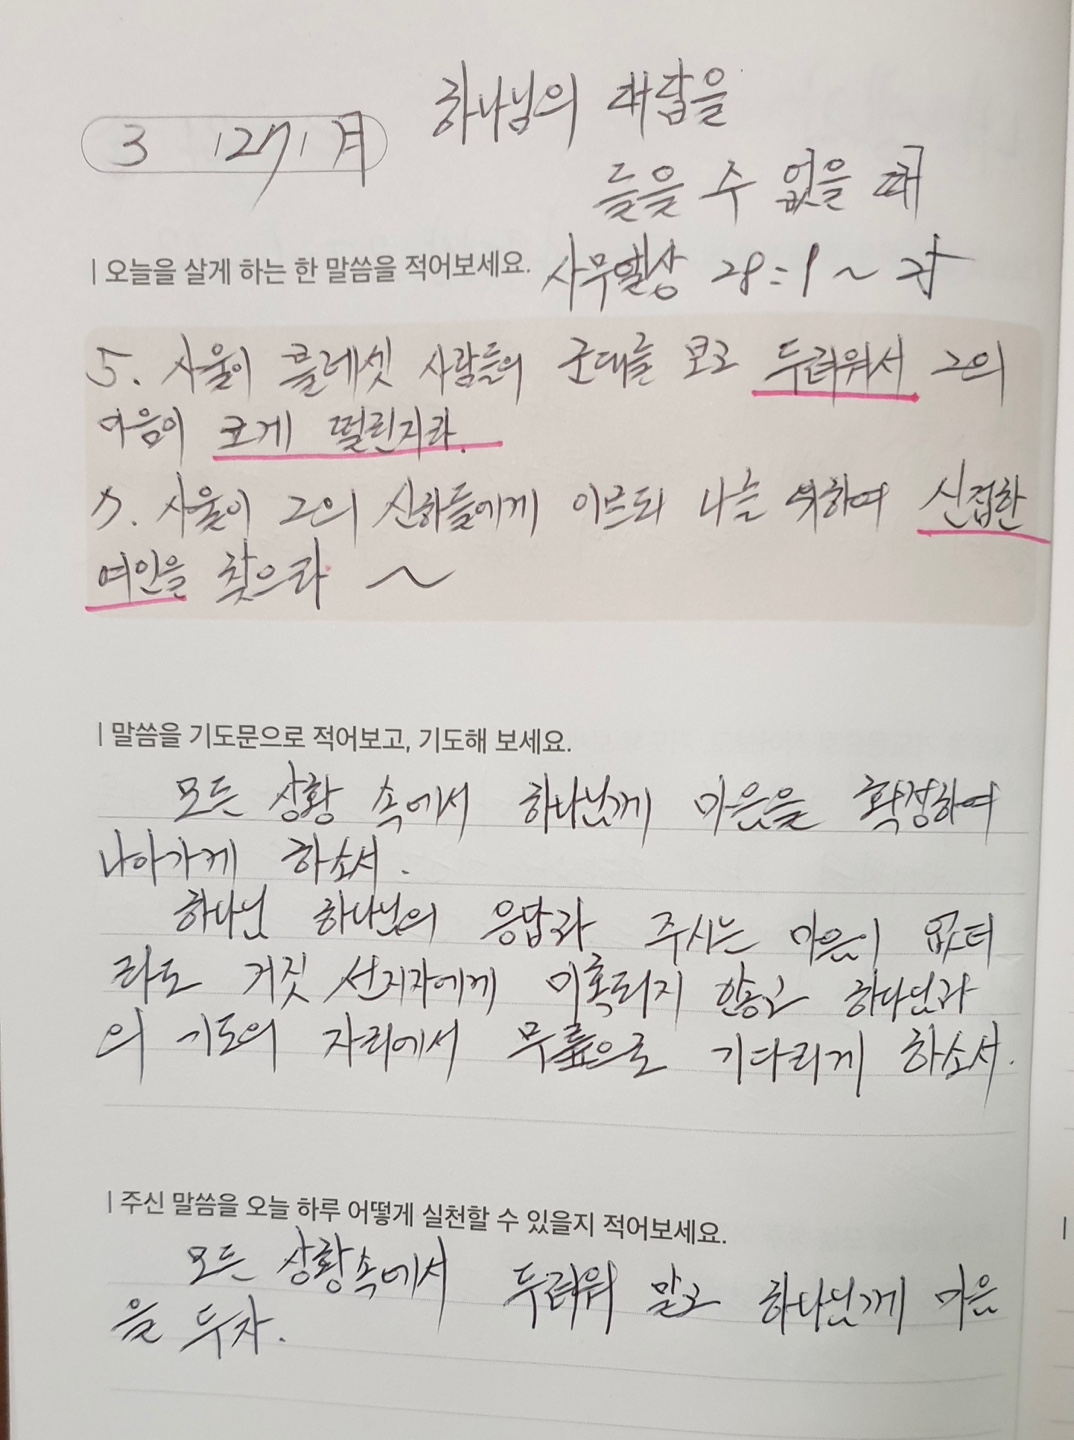 하나님의 대답을
3 12月1 月
들을 수 없을 때
| 오늘을 살게 하는 한 말씀을 적어보세요.
사무엘상 28:1 ~ 25
5. 사울이 블레셋 사람들의 군대를 보고 두려워서 그의
마음이 크게 떨린지라.
7. 사울이 그의 신하들에게 이르되 나를 위하여 신접한
여인을 찾으라 ~
| 말씀을 기도문으로 적어보고, 기도해 보세요.
모든 상황 속에서 하나님께 마음을 확정하여
나아가게 하소서.
하나님 하나님의 응답과 주시는 마음이 없더
라도 거짓 선지자에게 미혹되지 않고 하나님과
의 기도의 자리에서 무릎으로 기다리게 하소서.
| 주신 말씀을 오늘 하루 어떻게 실천할 수 있을지 적어보세요.
모든 상황속에서 두려워 말고 하나님께 마음
을 두자.